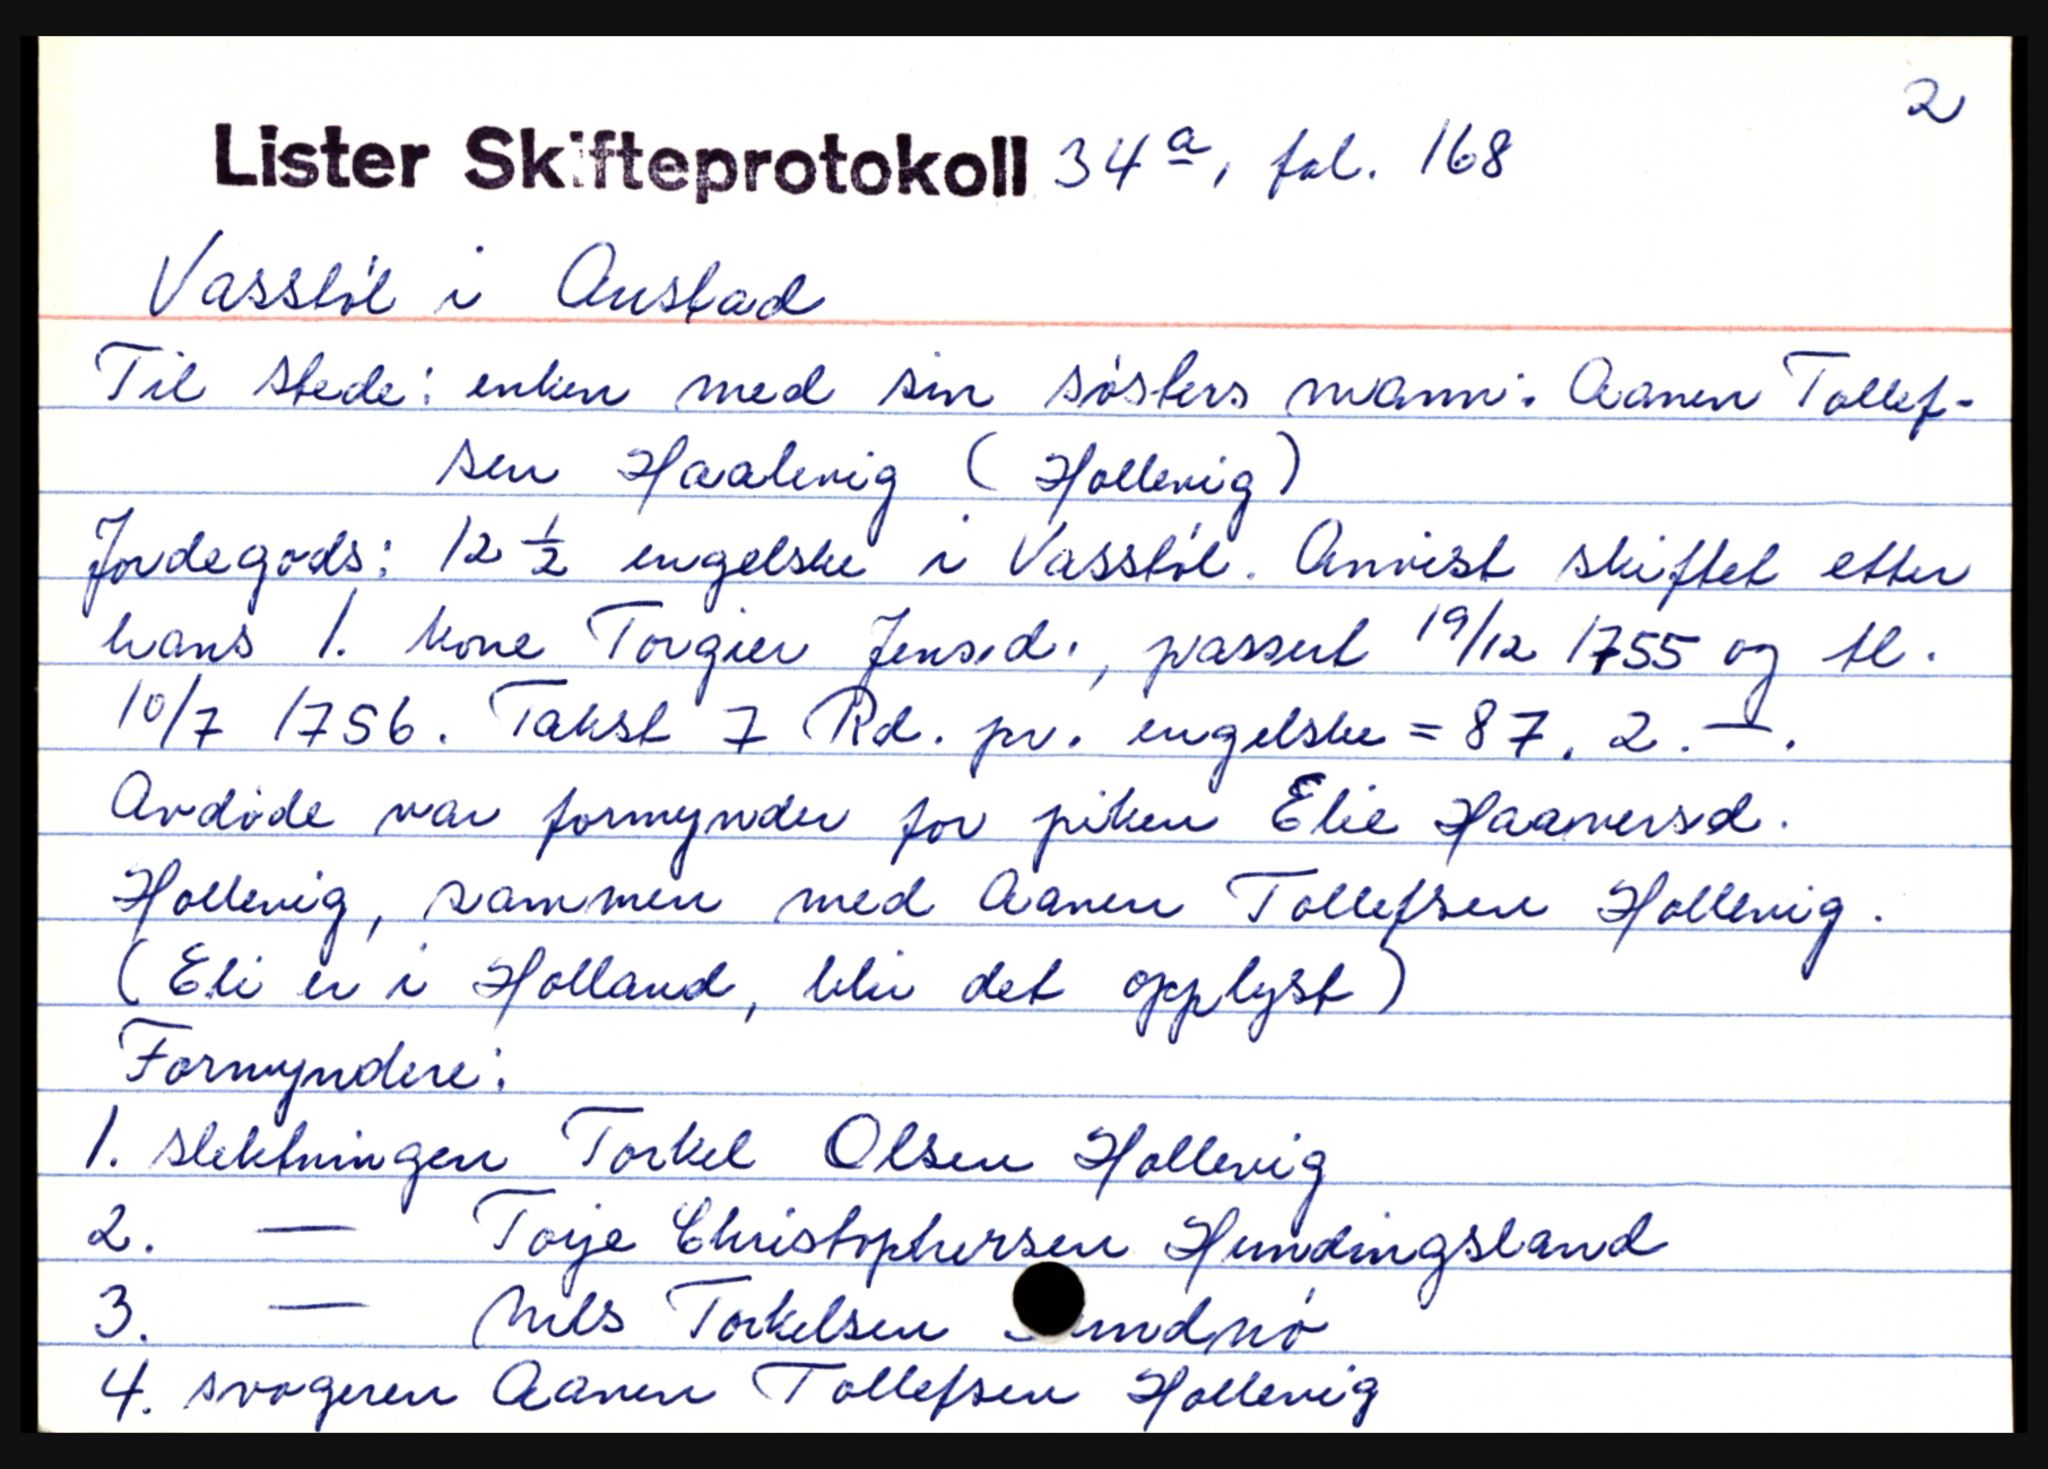 2
Lister Skifteprotokoll 34a, fol. 168
Vasstøl i Austad
Til stede: enken med sin søsters mann: Aanen Tollef-
sen Haalevig (Hollevig)
Jordegods: 12 1/2 engelske i Vasstøl. Anvist skiftet etter
hans 1. kone Torgier Jensd., passert 19/12 1755 og tl.
10/7 1756. Takst 7 Rd. pr. engelske = 87. 2. —.
Avdøde var formynder for piken Elie Haaversd.
Hollevig, sammen med Aanen Tollefsen Hollevig.
(Eli er i Holland, blir det opplyst)
Formyndere:
1. slektningen Torkel Olsen Hollevig
2. — Torje Christophersen Hundingsland
3. — Nils Torkelsen
4. svogeren Aanen Tollefsen Hollevig